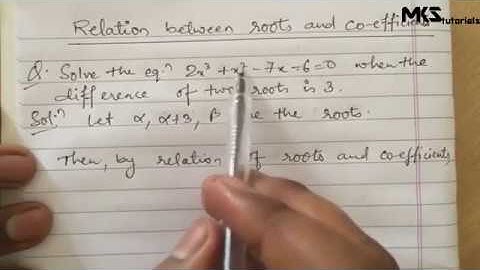 MKS
tutorials
Relation between roots and co-efficients
Q. Solve the eq.ⁿ 2x³ + x² - 7x - 6 = 0 when the
difference of two roots is 3.
Sol:ⁿ Let α, α+3, β be the roots.
Then, by relation of roots and co-efficients